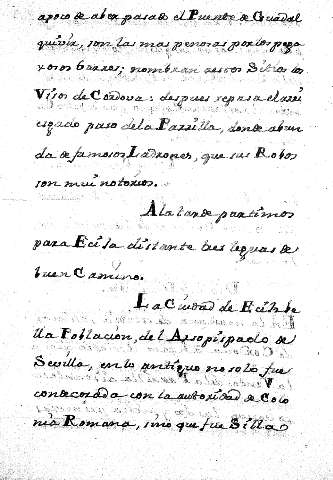 apoco de aber pasado el Puente de Guadal
quivir, son las mas penosas por los pega
xosos barros; nombran aestos Sitios los
Visos de Cordova: despues se pasa el arri
esgado paso de la Parrilla, donde abun
da de famosos Ladrones, que sus Robos
son mui notorios.
A la tarde partimos
para Ecija distante tres leguas de
buen Camino.
La Ciudad de Ecija be
lla Poblacion, del Arzopispado de
Sevilla, en lo antiguo no solo fue
condecorada con la autoridad de Colo
nia Romana, sino que fue Silla